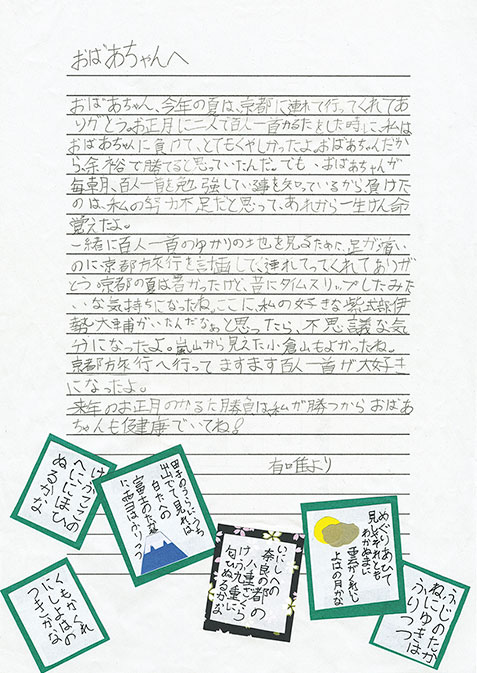 おばあちゃんへ
おばあちゃん、今年の夏は、京都に連れて行ってくれてあ
りがとう。お正月に二人で百人一首かるたをした時に、私は
おばあちゃんに負けて、とてもくやしかったよ。おばあちゃんだか
ら、余裕で勝てると思っていたんだ。でも、おばあちゃんが
毎朝、百人一首を勉強している事を知っているから負けた
のは、私の努力不足だと思って、あれから一生けん命
覚えたよ。
一緒に百人一首のゆかりの地を見るために、足が痛い
のに京都旅行を計画して、連れてってくれてありが
とう。京都の夏は暑かったけど、昔にタイムスリップしたみた
いな気持ちになったね。ここに、私の好きな紫式部、伊
勢大輔がいたんだなぁと思ったら、不思議な気
分になったよ。嵐山から見えた小倉山もよかったね。
京都旅行へ行ってますます百人一首が大好き
になったよ。
来年のお正月のかるた勝負は、私が勝つから おばあ
ちゃんも健康でいてね!
有唯より
けふここの
へににほひ
ぬるかな
田子のうらにうち
出でて見れば
白たへの
富士のたか
に雪はふりつつ
いにしへの
奈良の都の
八重ざくら
けふ九重に
匂ひぬるかな
めぐりあひて
見しやそれとも
わかぬまに
雲がくれにし
よはの月かな
ふじのたか
ねにゆきは
ふりつつ
くもがくれ
にしよはの
つきかな